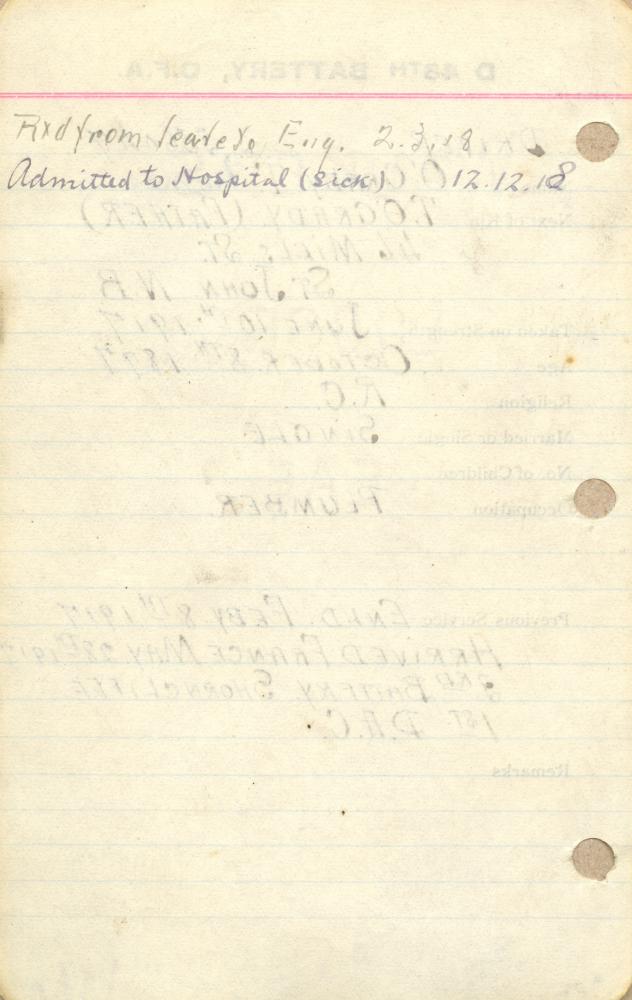 Rxd from leave to Eng. 2.3.18
Admitted to Hospital (Sick) 12.12.18
D 48TH BATTERY, C.F.A.
Next of Kin T. O'GRADY (FATHER)
ST. JOHN N.B
Taken on Strength JUNE 10TH 1917
Age OCTOBER 8TH
Religion R.C.
Married or Single SINGLE
No. of Children
Occupation PLUMBER
Previous Service ENLD. FEBY 8TH 1917
ARRIVED FRANCE MAY 28TH 1917
BATTERY, SHORNCLIFFE
1ST D.A.C.
Remarks